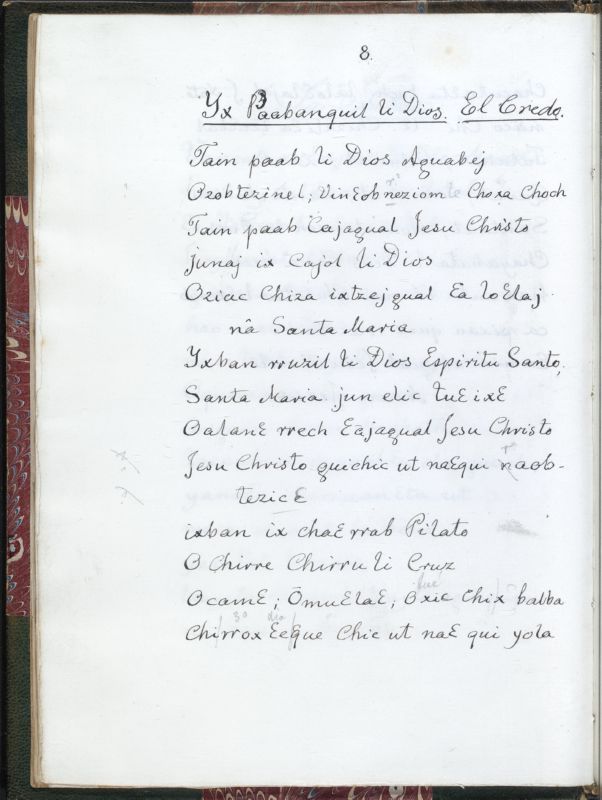 8.
Yx Paabanquil li Dios. El Credo.
Tain paab li Dios Aguabej
Ozobtezinel, Vinɛobneziom le Choxa Choch
Tain paab Cajagual Jesu Christo
junaj ix Cajol li Dios
Oziac Chiza ixtzejgual Ea loElaj
nâ Santa Maria
Yxban rruzil li Dios Espiritu Santo,
Santa Maria jun elic tuɛ ixɛ
Oalanɛ rrech Eajagual Jesu Christo
Jesu Christo guichic ut naɛqui naob-
tezicɛ
ixban ix chaɛ rrab Pilato
O Chirre Chirru li Cruz
Ocamɛ; Ōmuɛlaɛ; Oxic Chix balba
Chirrox Eeque Chic ut naɛ qui yola